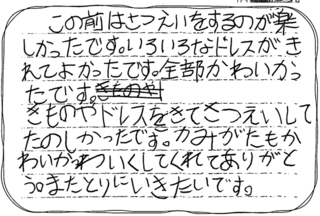 この前はさつえいをするのが楽
しかったです。いろいろなドレスがき
れてよかったです。全部かわいかっ
たです。
きものやドレスをきてさつえいして
たのしかったです。かみがたもか
わいがわついくしてくれてありがと
う。またとりにいきたいです。